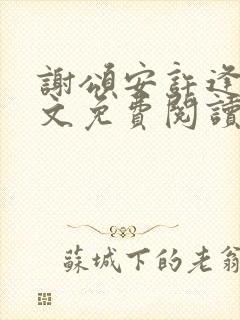 謝頌安許逢
文免費閱讀
蘇城下的老翁